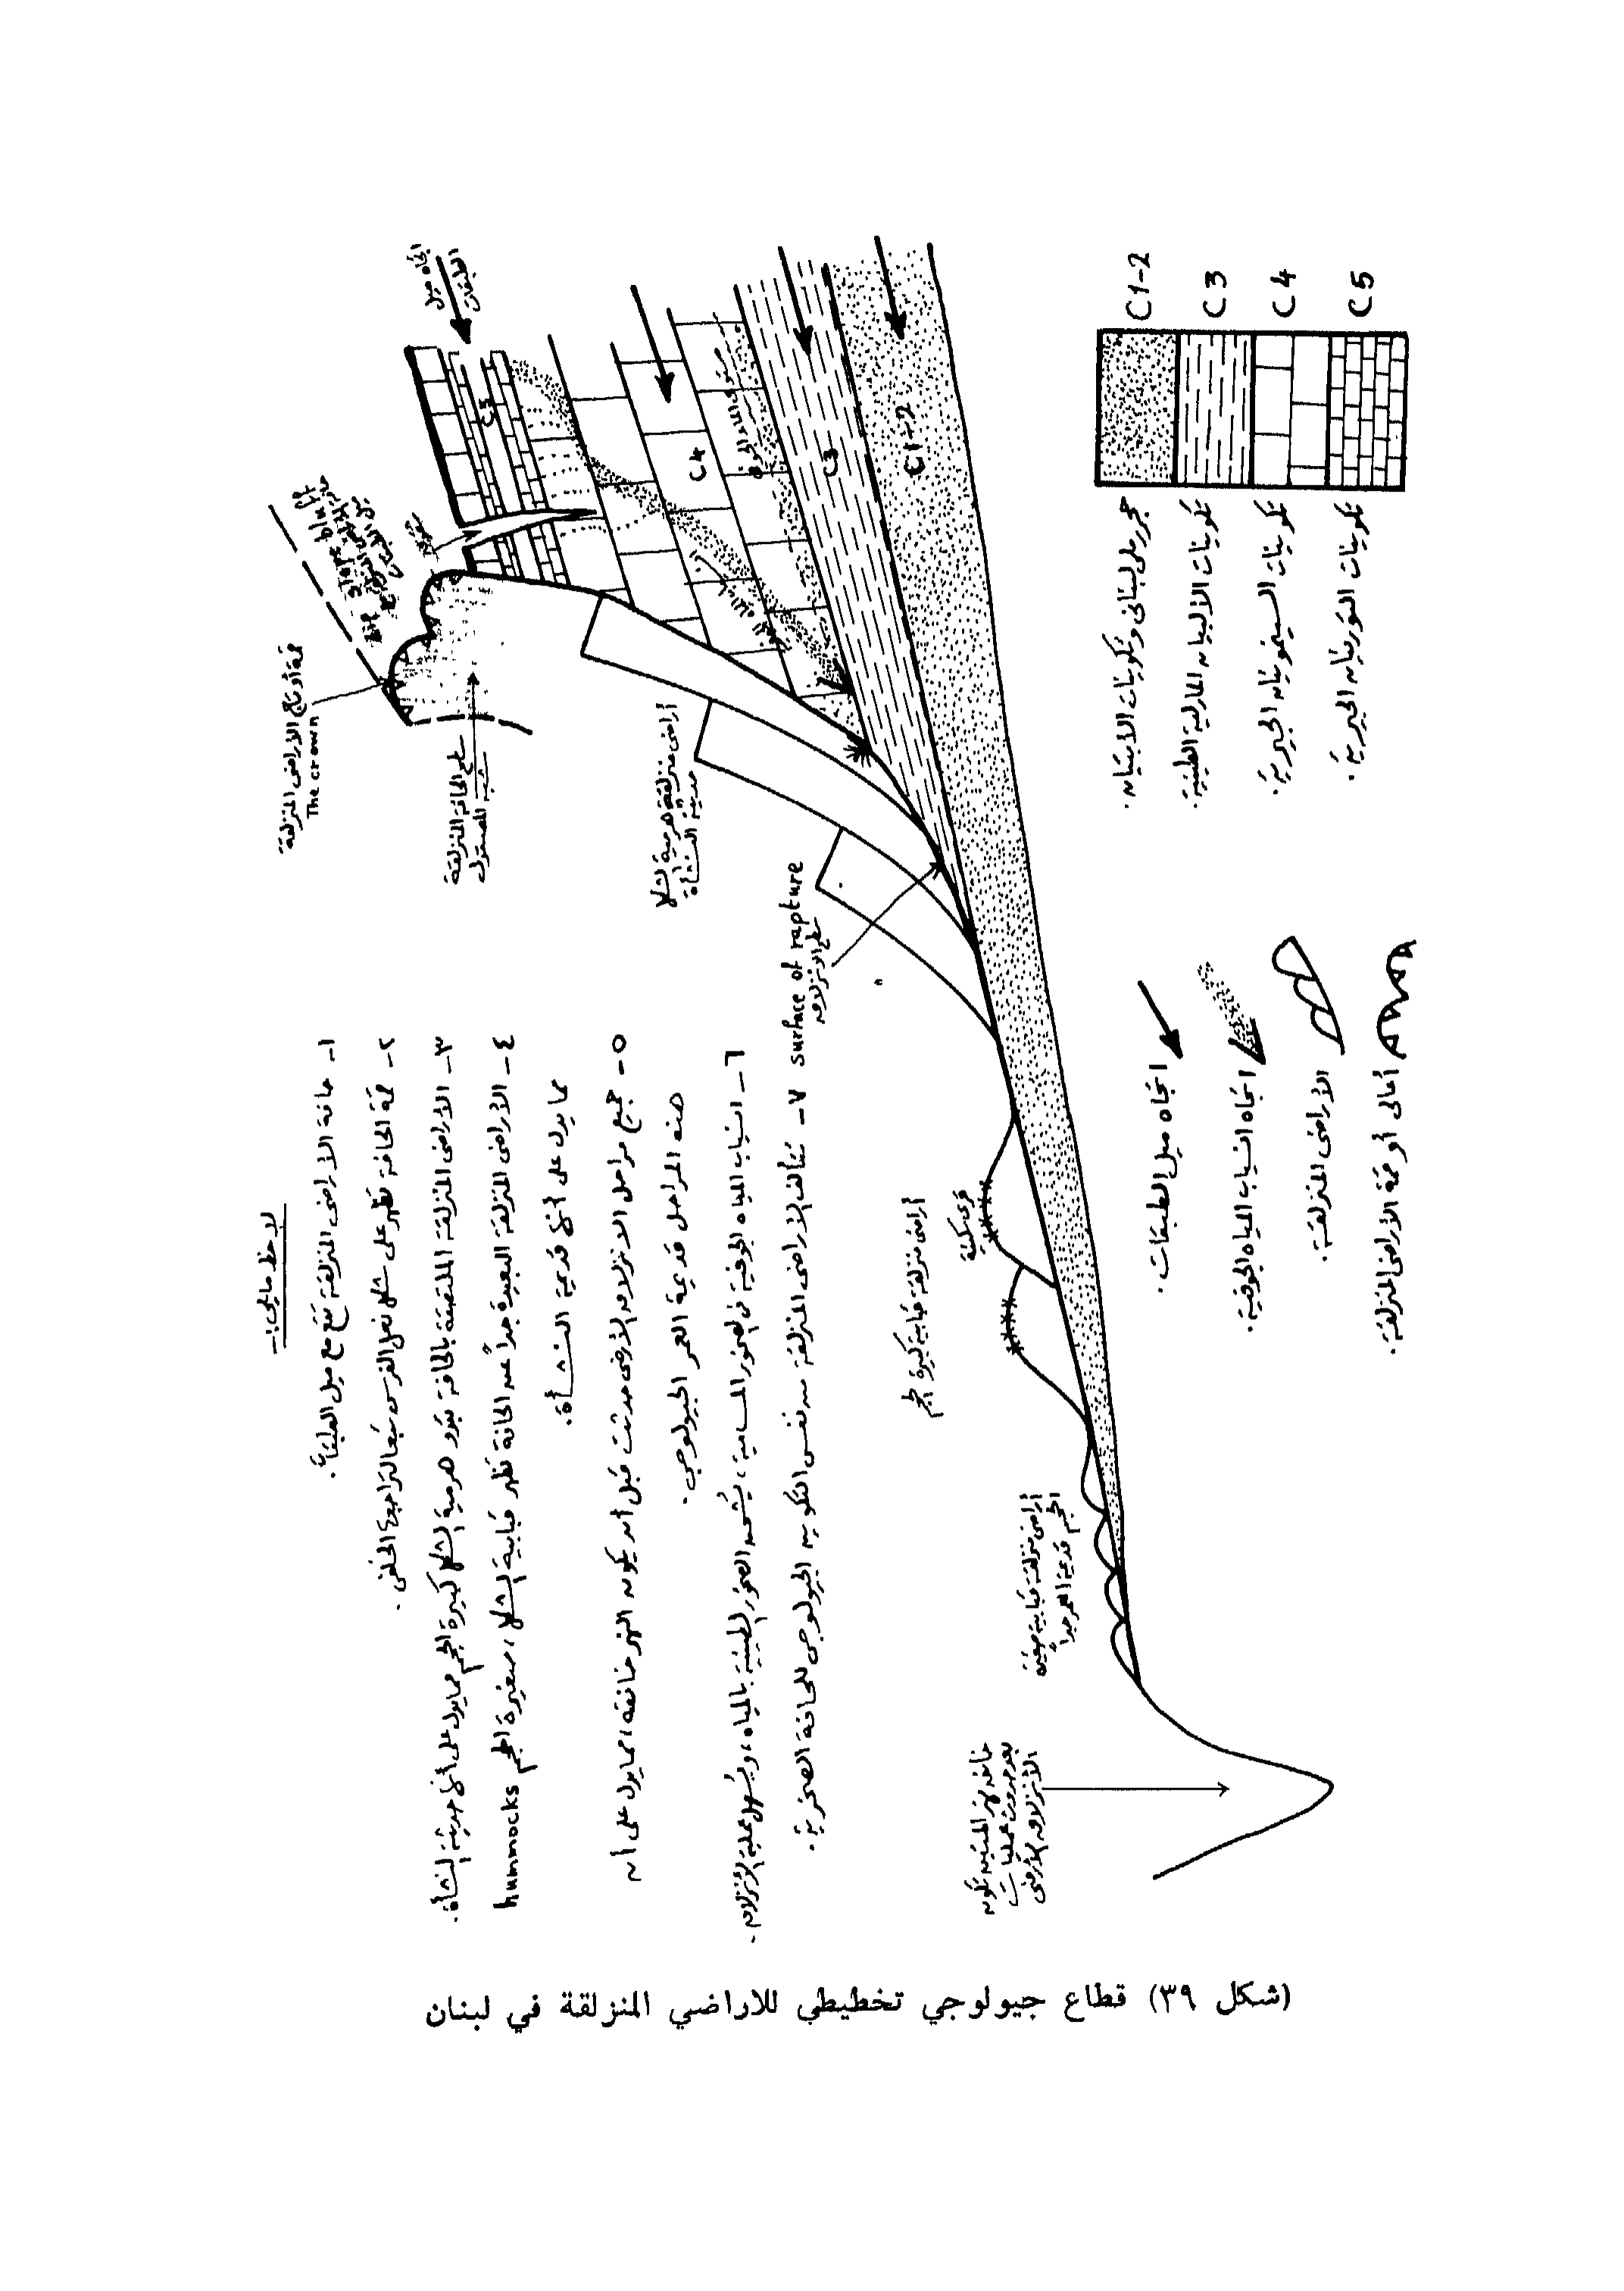 لاحظ مايلي:-
١- حافة الأراضى المنزلقة تقع مع ميل الطبقات.
٢- قمة الحافة تظهر على شكل نعل الفرس تبعا لتراجعها الخلفى.
٣- الأراضى المنزلقة الملتصقة بالحافة تبدو هرمية الشكل كبيرة الحجم مما يدل على أنها حديثة النشأة.
٤- الأراضى المنزلقة البعيدة جداً عن الحافة تظهر قبابية الشكل، صغيرة الحجم hummocks
مما يدل على أنها قديمة النشأة.
٥- جميع مراحل الانزلاق الأرضى حدثت قبل أن يكون النهر خانقه، مما يدل على أن
هذه المراحل قديمة العمر الجيولوجي.
٦- انسياب المياه الجوفية فى الصخور المسامية، يُشحم الصخور الطينية بالمياه، ويُسهل عملية الإنزلاق.
٧- تتألف الأراضى المنزلقة من نفس التكوين الجيولوجى للحافة الصخرية.
قمة أو تاج الأراضى المنزلقة
The crown
slope bluff
شقوق
اتجاه ميل
الطبقات
سطح الحافة المنزلقة
أراضى منزلقة هرمية الشكل
حديثة النشأة
surface of rapture
سطح الانزلاق
C5
C4
مستوى الماء الجوفى
C3
C1-2
أراضى منزلقة قبابية كبيرة الحجم
قرى سكنية
أراضى منزلقة قبابية صغيرة
الحجم قديمة العمر جداً
خانق نهر المتين تكون
بعد حدوث عمليات
الأنزلاق الأرضى
حجر رملى لبنانى وتكوينات الأبتيان. C1-2
تكوينات الألبيان المارلية الطينية. C3
تكوينات السينومونيان الجيرية. C4
تكوينات التورنيان الجيرية. C5
اتجاه ميل الطبقات.
اتجاه انسياب المياه الجوفية.
الأراضى المنزلقة.
أعالى أو قمة الأراضى المنزلقة.
(شكل ٣٩) قطاع جيولوجي تخطيطي للاراضي المنزلقة في لبنان